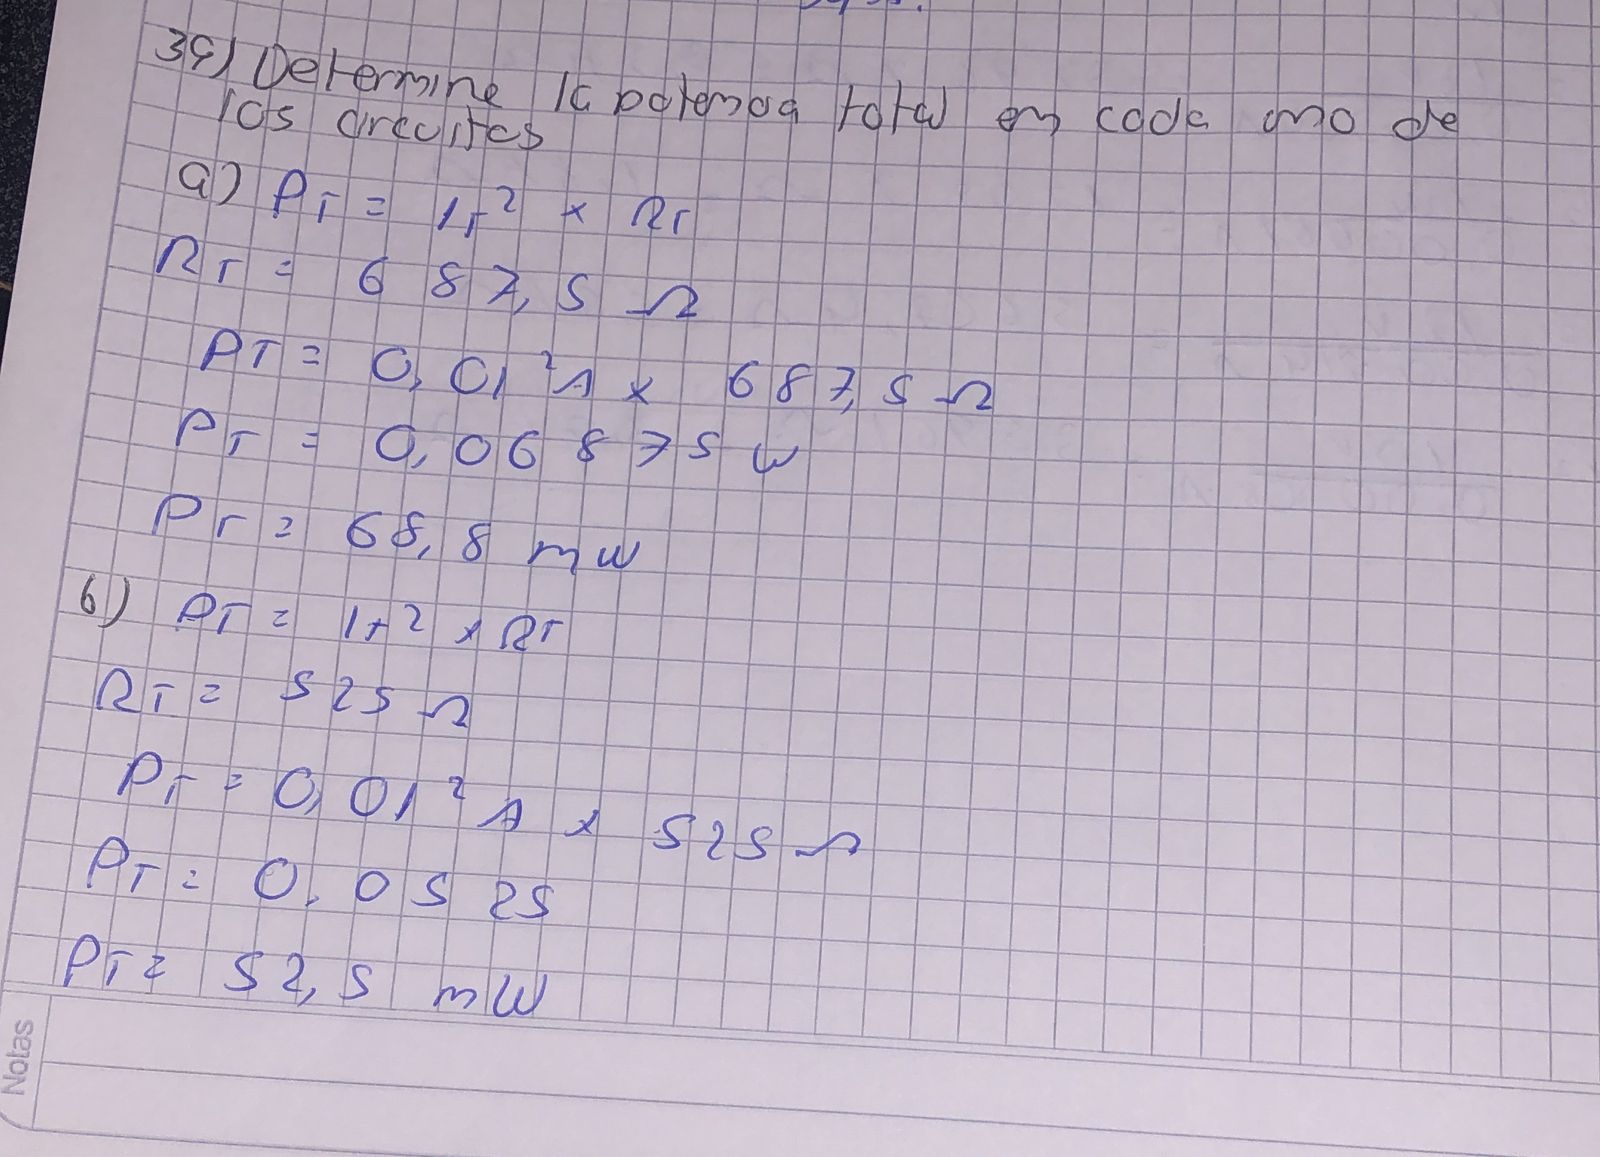 39) Determine la potencia total en cada uno de
los circuitos
a) PT = IT² x RT
RT = 687,5 Ω
PT = 0,01²A x 687,5 Ω
PT = 0,06875 W
PT = 68,8 mW
b) PT = IT² x RT
RT = 525 Ω
PT = 0,01² A x 525 Ω
PT = 0,0525
PT = 52,5 mW
Notas